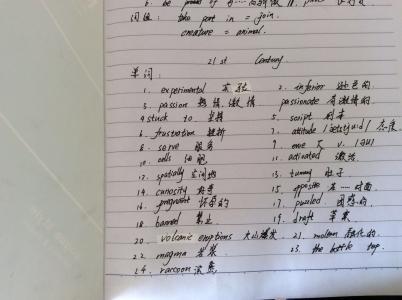 词组: take part in = join.
creature = animal.
21st Century.
单词:
1. experimental 实验 2. inferior 逊色的
3. passion 热情,激情 passionate 有激情的
4 stuck to 坚持 5. script 剧本
6. frustration 挫折 7. attitude 态度
8. serve 服务 9.
10. cells 细胞 11. activated 激活
12. spatially 空间地 13. tummy 肚子
14. curiosity 好奇 15. opposite 在……对面
16. pregnant 怀孕的 17. puzzled 困惑的
18. banned 禁止 19. draft 草案
20. volcanic eruptions 火山爆发 21. molten 融化的
22. magma 岩浆 23. the bottle top.
24. raccoon 浣熊